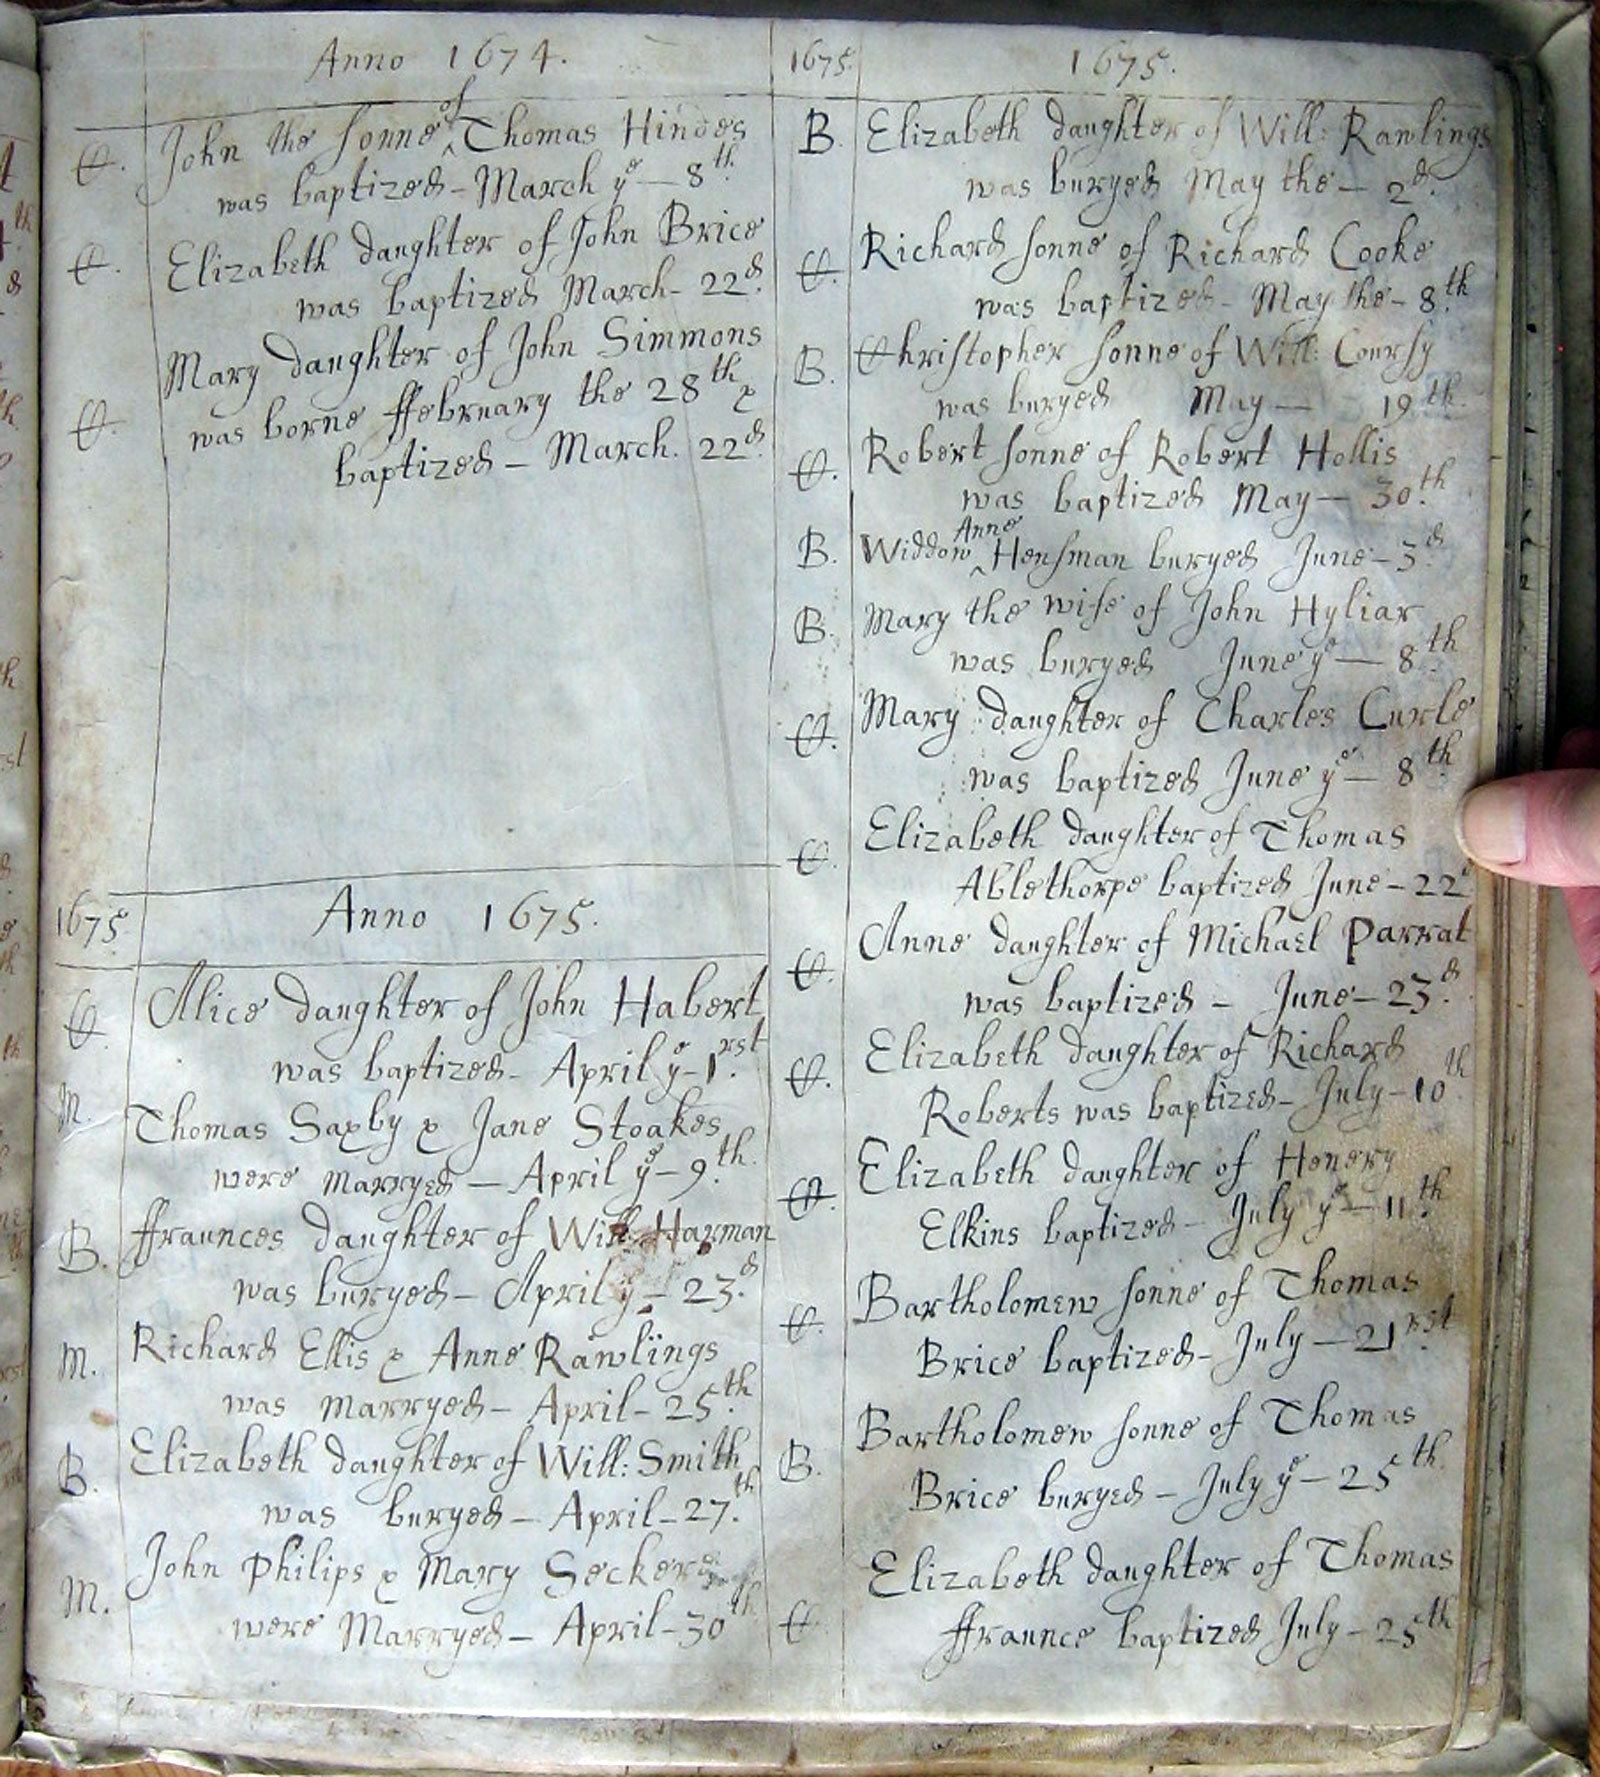 Anno 1674.
C. John the sonne of Thomas Hindes
was baptized - March ye - 8th.
C. Elizabeth daughter of John Brice
was baptized March - 22d.
Mary daughter of John Simmons
C. was borne ffebruary the 28th &
baptized - March. 22d.
1675. Anno 1675.
C. Alice daughter of John Habert
was baptized - April ye - 1rst.
M. Thomas Saxby & Jane Stoakes
were Marryed - April ye - 9th.
B. ffraunces daughter of Will: Harman
was buryed - April ye - 23d.
M. Richard Ellis & Anne Rawlings
was Marryed - April - 25th.
B. Elizabeth daughter of Will: Smith
was buryed - April - 27th.
M. John Philips & Mary
were Marryed - April - 30th
1675. 1675.
B. Elizabeth daughter of Will: Rawlings
was buryed May the - 2d.
C. Richard sonne of Richard Cooke
was baptized - May the - 8th.
B. Christopher sonne of Will: Coursy
was buryed May - 19th.
C. Robert sonne of Robert Hollis
was baptized May - 30th.
B. Widdow Anne Hensman buryed June - 3d.
B. Mary the wife of John Hyliar
was buryed June ye - 8th.
C. Mary daughter of Charles Curle
was baptized June ye - 8th.
C. Elizabeth daughter of Thomas
Ablethorpe baptized June - 22d
C. Anne daughter of Michael Parrat
was baptized - June - 23d.
C. Elizabeth daughter of Richard
Roberts was baptized - July - 10th.
C. Elizabeth daughter of Henery
Elkins baptized - July ye - 11th.
C. Bartholomew sonne of Thomas
Brice baptized - July - 21rst.
B. Bartholomew sonne of Thomas
Brice buryed - July ye - 25th.
Elizabeth daughter of Thomas
C. ffraunce baptized July - 25th